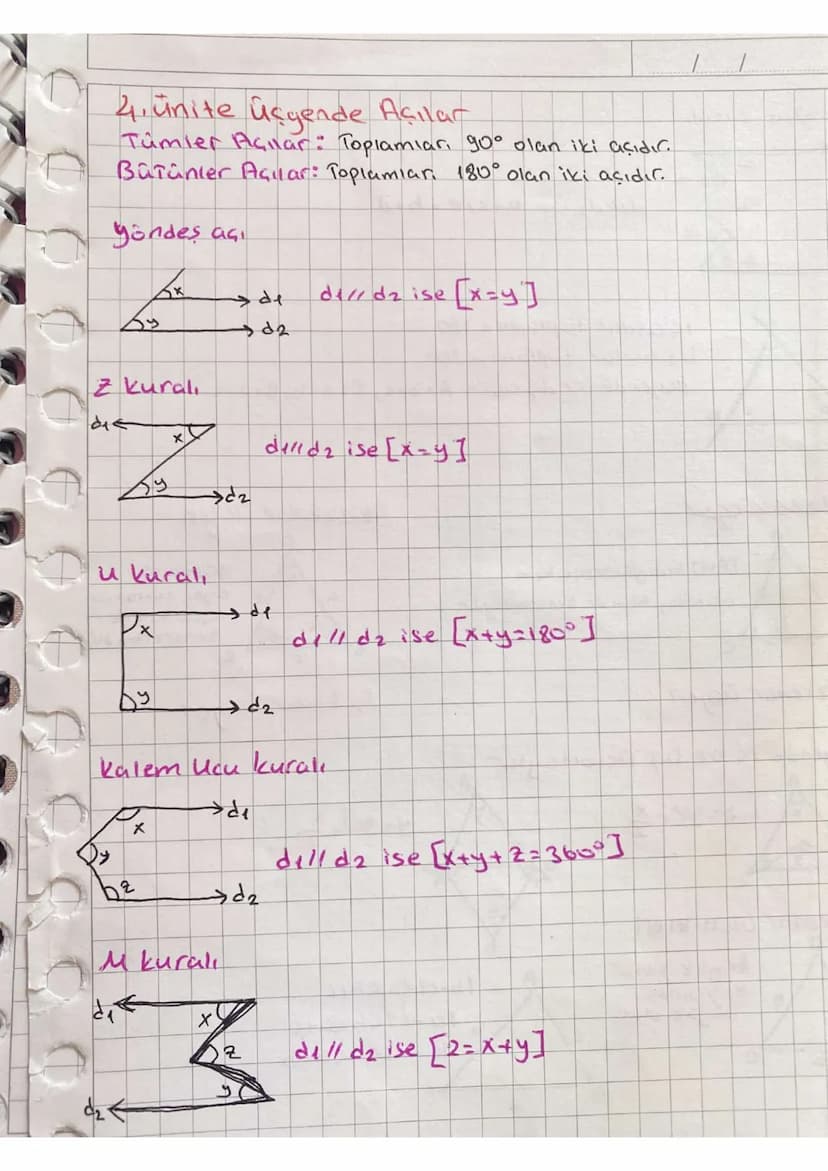 / /
4. ünite Üçgende Açılar
Tümler Açılar: Toplamları 90° olan iki açıdır.
Bütünler Açılar: Toplamları 180° olan iki açıdır.
Yöndeş açı
x d1 d1//d2 ise [x=y]
y d2
Z kuralı
d1 x d1//d2 ise [x=y]
y d2
U kuralı
d1
x d1//d2 ise [x+y=180°]
y d2
Kalem Ucu kuralı
d1
x
y d1//d2 ise [x+y+z=360°]
z d2
M kuralı
d1 x
z d1//d2 ise [z=x+y]
y
d2